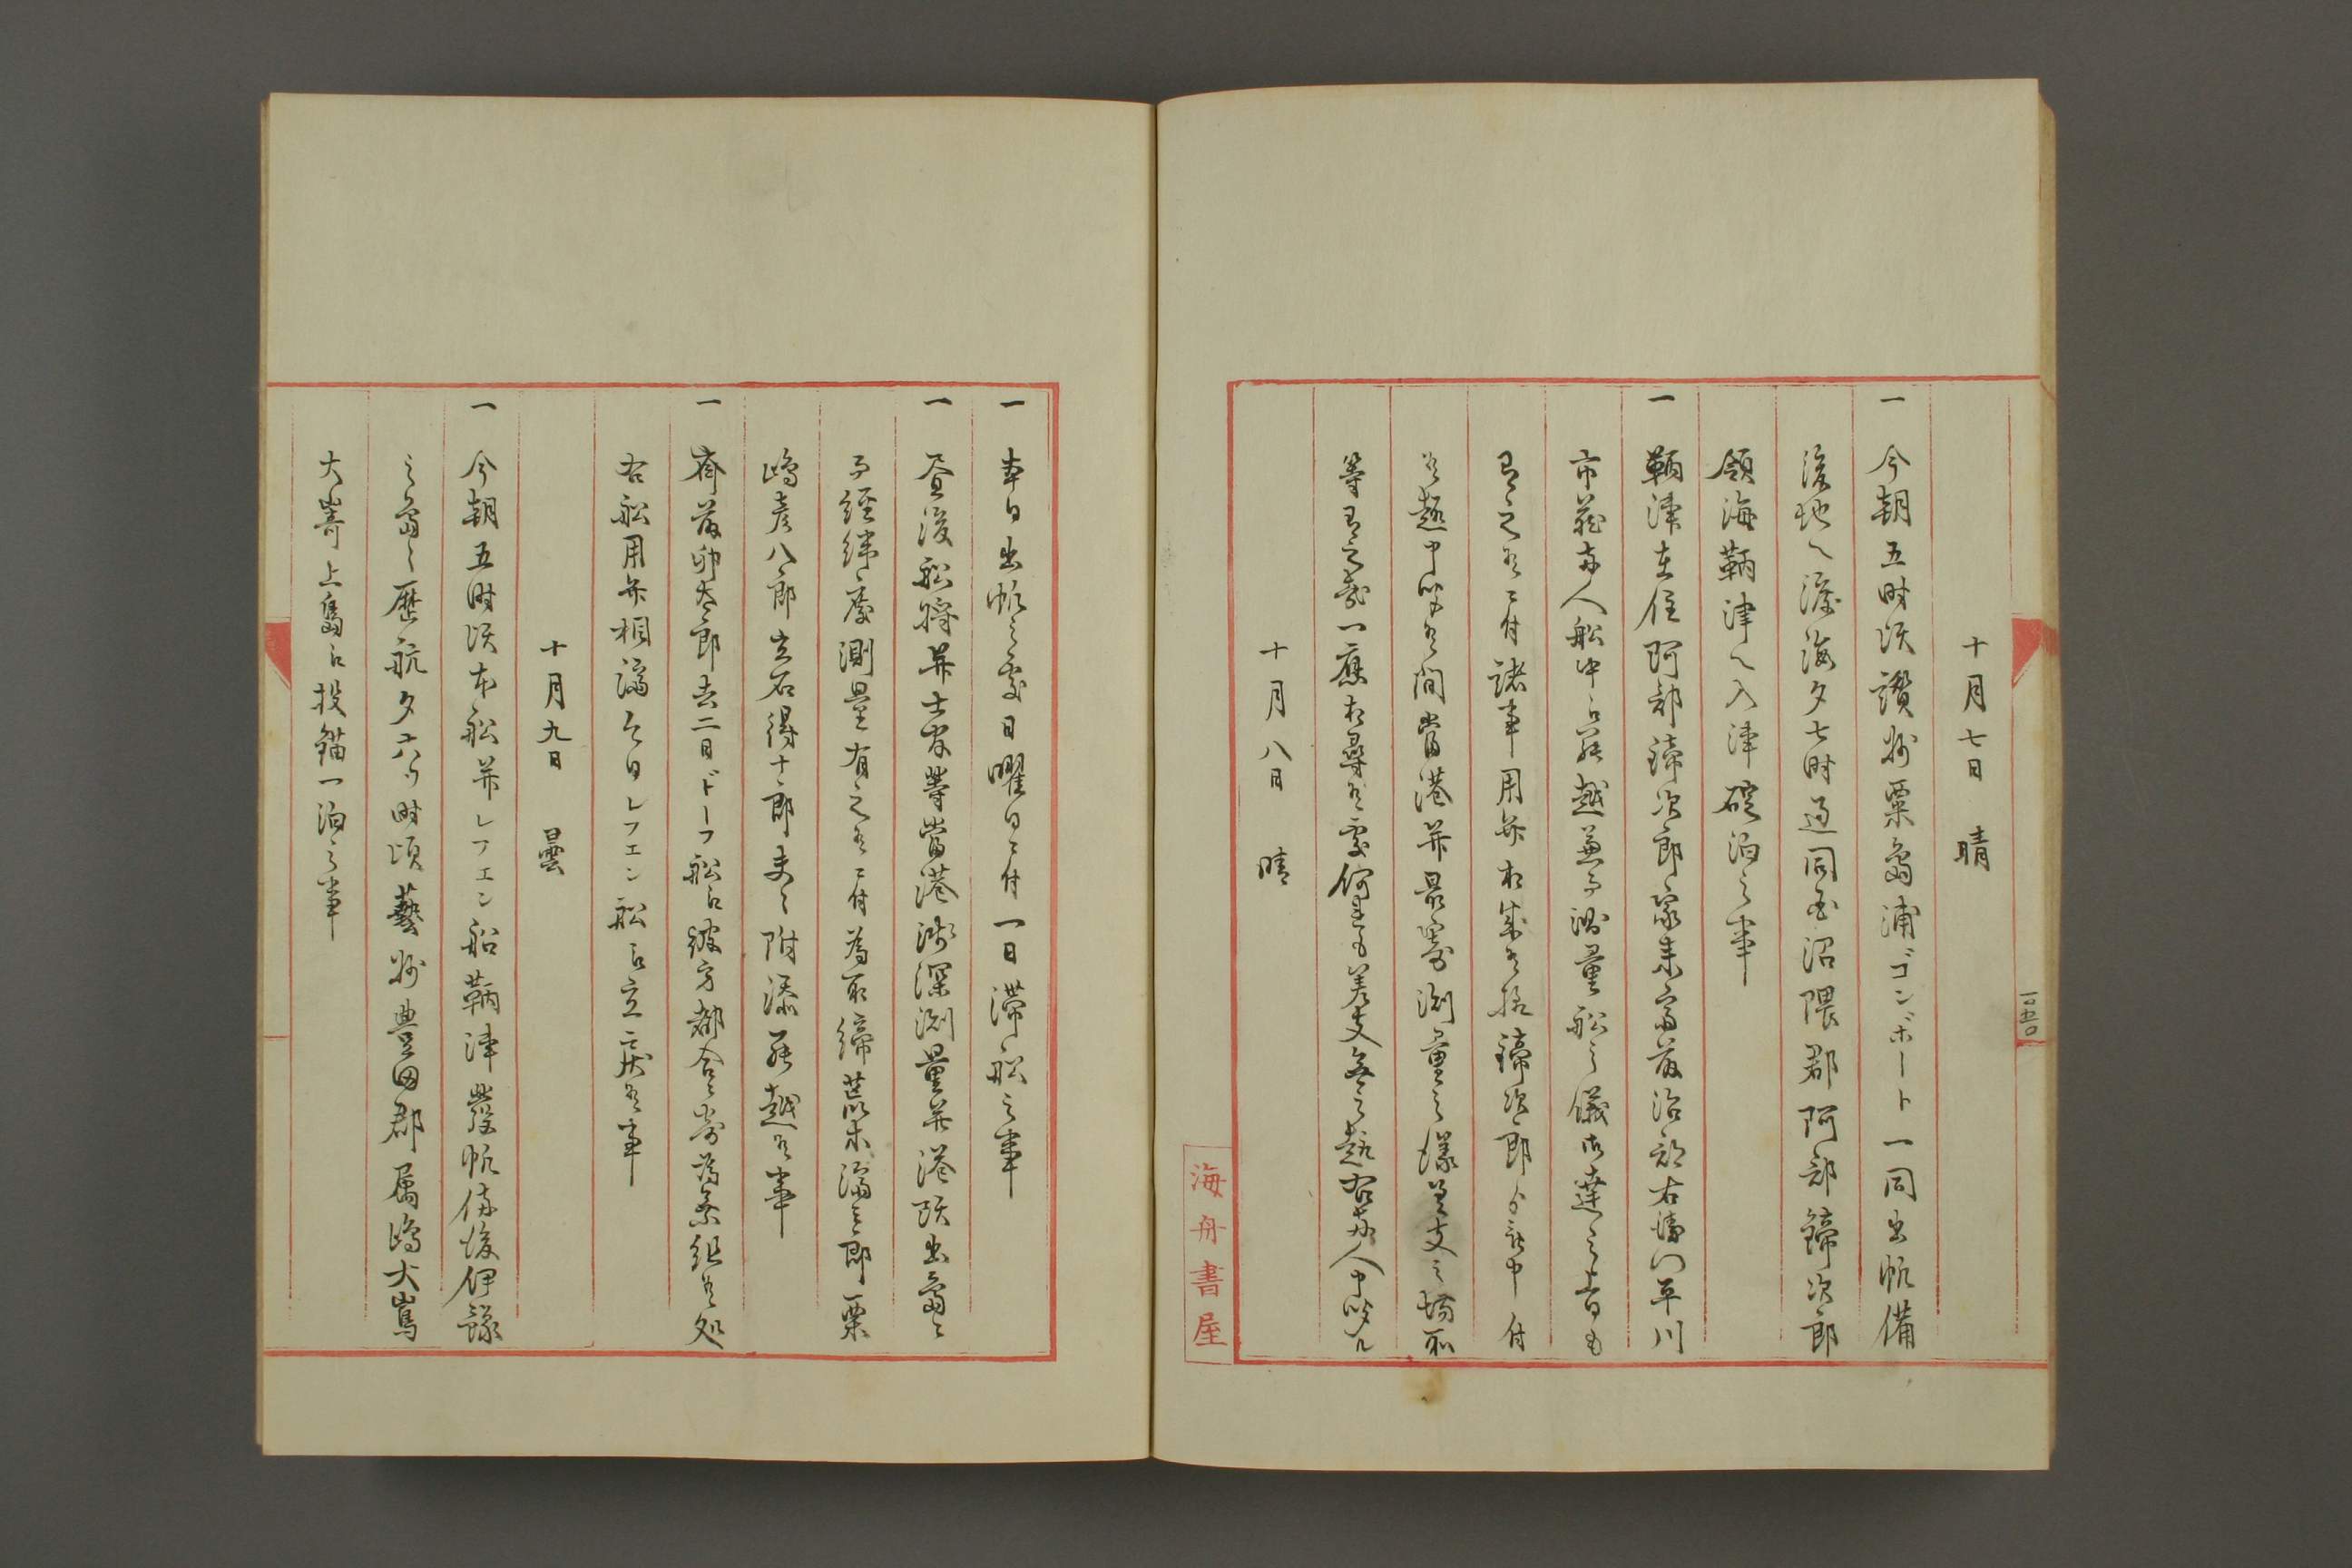 十月七日　晴
一　今朝五時頃讃州粟島浦ゴンボート一同出帆備
後地へ渡海夕七時過同国沼隈郡阿部鏑次郎
領海鞆津へ入津碇泊之事
一　鞆津在住阿部鏑次郎家来斎藤治郎右衛門平川
市蔵両人船中江罷越兼而測量船之儀御達之旨も
有之候ニ付諸事用弁相成候様鏑次郎ゟ申付
候趣申聞候間当港并最寄測量之儀差支之場所
等有之哉一応相尋候処何等も差支無之趣右両人申聞候
十月八日　晴
海舟書屋
一　本日出帆之処日曜日ニ付一日滞船之事
一　昼後船将并士官等当港浅深測量并港頭出島ニ
而経緯度測量有之候ニ付為取締荒木済三郎粟
嶋彦八郎立石得十郎夫々附添罷越候事
一　斎藤卯太郎去二日ドーフ船江彼方都合ニ寄為乗組候処
右船用弁相済今日レフエン船江立戻候事
十月九日　曇
一　今朝五時頃本船并レフエン船鞆津発帆備後伊豫
之島々歴航夕六ツ時頃藝州豊田郡属嶋大嶌
大嵜上島江投錨一泊之事